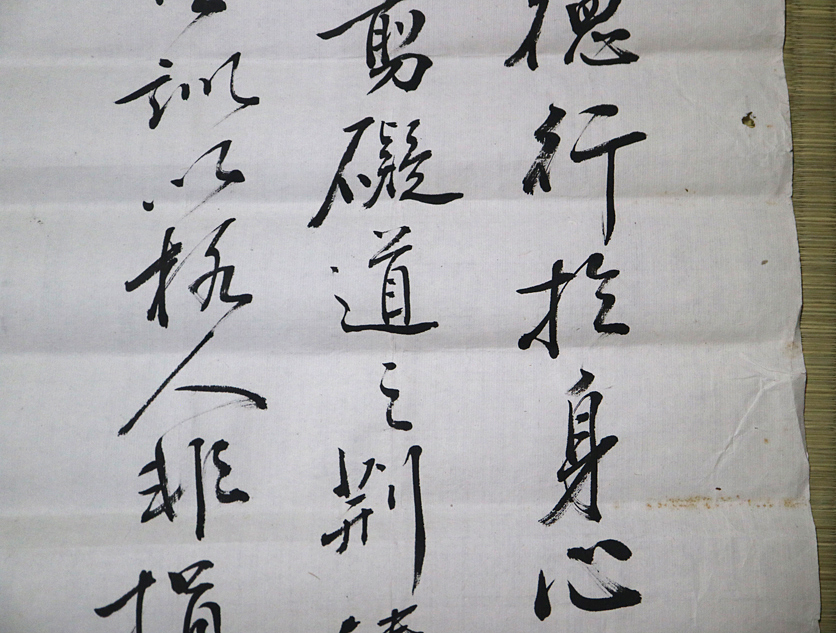 德行於身心
剪礙道之荆
訓以格人非